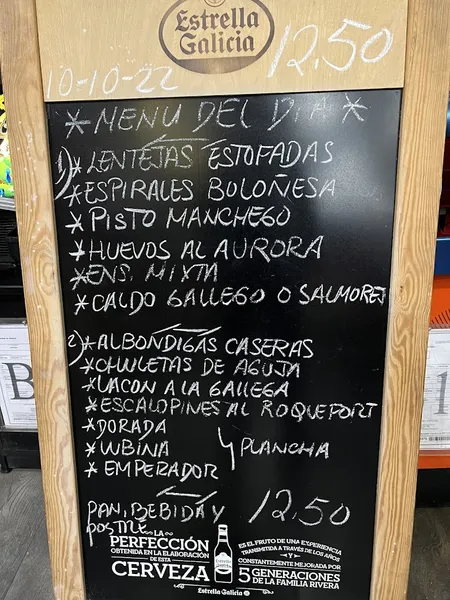 Estrella
Galicia
12,50
10-10-22
* MENU DEL DIA *
1) * LENTEJAS ESTOFADAS
* ESPIRALES BOLOÑESA
* PISTO MANCHEGO
* HUEVOS AL AURORA
* ENS. MIXTA
* CALDO GALLEGO O SALMOREJ
2) * ALBONDIGAS CASERAS
* CHULETAS DE AGUJA
* LACON A LA GALLEGA
* ESCALOPINES AL ROQUEFORT
* DORADA
* LUBINA } PLANCHA
* EMPERADOR
PAN, BEBIDA Y 12,50
POSTRE
LA
PERFECCIÓN
OBTENIDA EN LA ELABORACIÓN
DE ESTA
CERVEZA
ES EL FRUTO DE UNA EXPERIENCIA
TRANSMITIDA A TRAVÉS DE LOS AÑOS
Y
CONSTANTEMENTE MEJORADA POR
5 GENERACIONES
DE LA FAMILIA RIVERA
Estrella Galicia
B
1